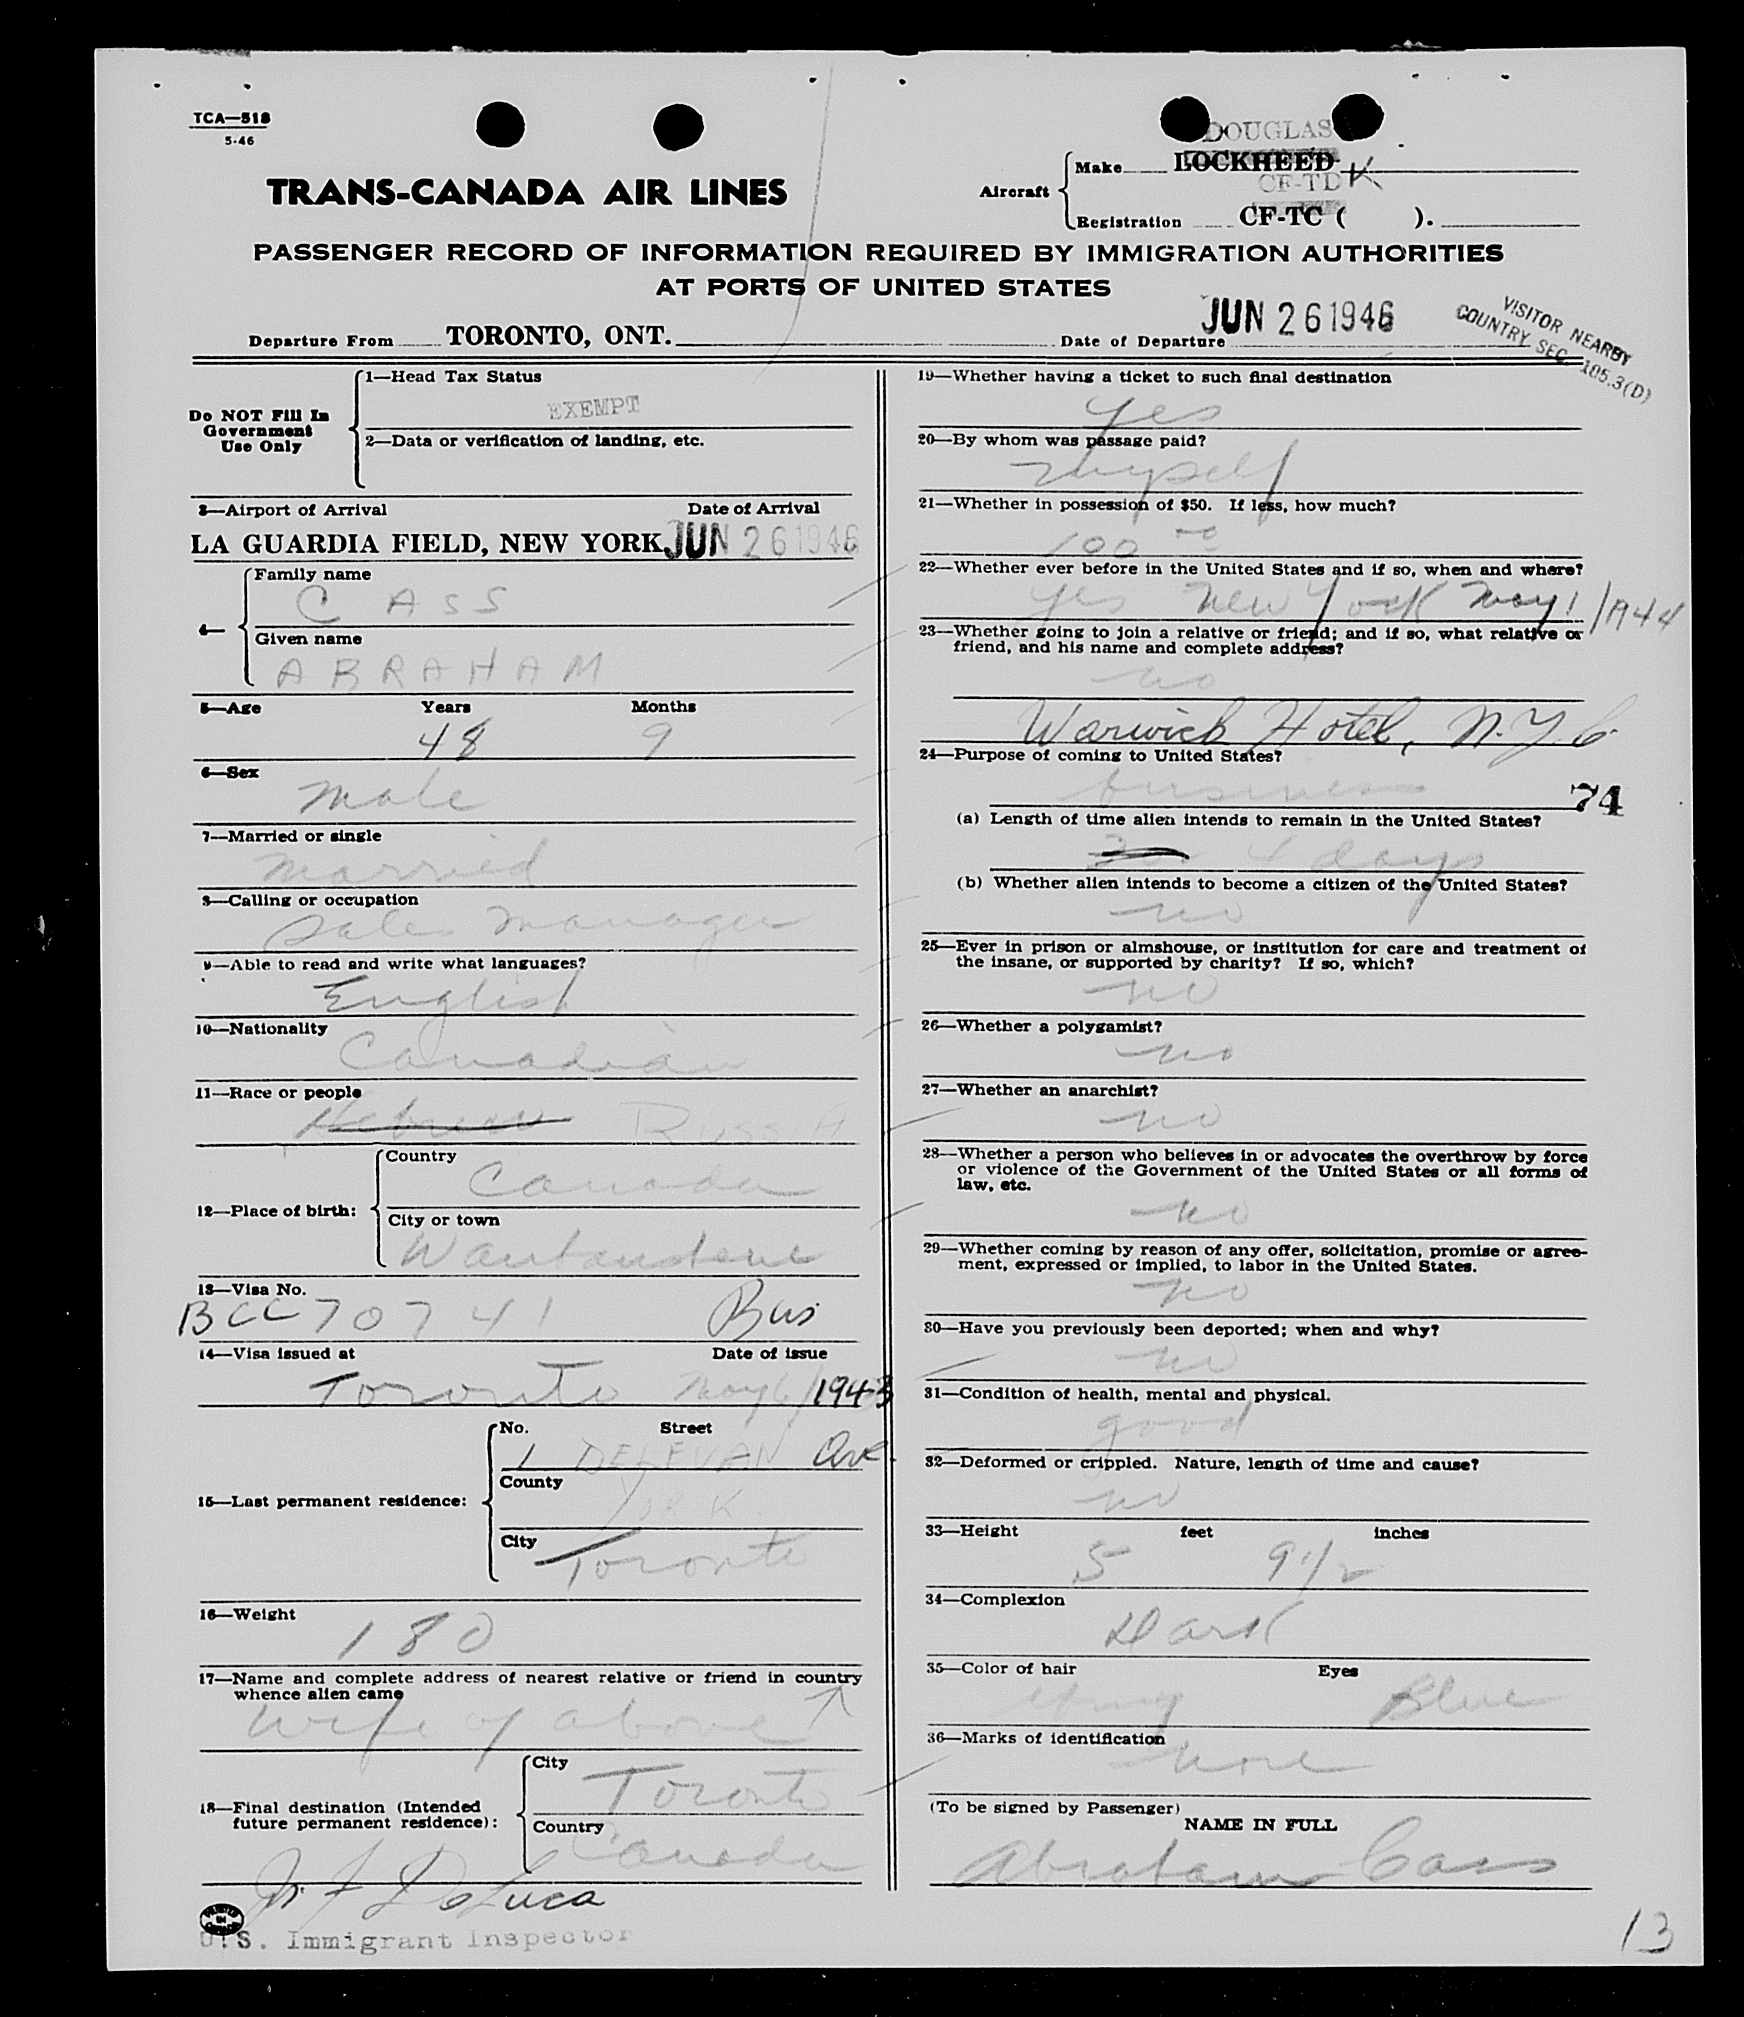 TCA—518
5-46
DOUGLAS
Make LOCKHEED
CF-TDK
Aircraft
Registration CF-TC ( ).
TRANS-CANADA AIR LINES
PASSENGER RECORD OF INFORMATION REQUIRED BY IMMIGRATION AUTHORITIES
AT PORTS OF UNITED STATES
Departure From TORONTO, ONT.
Date of Departure JUN 26 1946
VISITOR NEARBY
COUNTRY SEC. 105.3(D)
Do NOT Fill In
Government
Use Only
1—Head Tax Status
EXEMPT
2—Data or verification of landing, etc.
3—Airport of Arrival Date of Arrival
LA GUARDIA FIELD, NEW YORK JUN 26 1946
4—
Family name
CASS
Given name
ABRAHAM
5—Age Years Months
48 9
6—Sex
Male
7—Married or single
Married
8—Calling or occupation
Sales Manager
9—Able to read and write what languages?
English
10—Nationality
Canadian
11—Race or people
Hebrew RUSSIA
12—Place of birth:
Country
Canada
City or town
13—Visa No.
BCC 70741 Bus
14—Visa issued at Date of issue
Toronto May 6/1943
15—Last permanent residence:
No. Street
1 DELEVAN Ave.
County
YORK
City
Toronto
16—Weight
180
17—Name and complete address of nearest relative or friend in country
whence alien came
Wife of above
18—Final destination (Intended
future permanent residence):
City
Toronto
Country
Canada
DeLuca
PRINTED IN CANADA
U.S. Immigrant Inspector
19—Whether having a ticket to such final destination
Yes
20—By whom was passage paid?
Myself
21—Whether in possession of $50. If less, how much?
100 00
22—Whether ever before in the United States and if so, when and where?
Yes New York May 1/1944
23—Whether going to join a relative or friend; and if so, what relative or
friend, and his name and complete address?
no
Warwick Hotel, N.Y.C.
24—Purpose of coming to United States?
business
74
(a) Length of time alien intends to remain in the United States?
4 days
(b) Whether alien intends to become a citizen of the United States?
no
25—Ever in prison or almshouse, or institution for care and treatment of
the insane, or supported by charity? If so, which?
no
26—Whether a polygamist?
no
27—Whether an anarchist?
no
28—Whether a person who believes in or advocates the overthrow by force
or violence of the Government of the United States or all forms of
law, etc.
no
29—Whether coming by reason of any offer, solicitation, promise or agree-
ment, expressed or implied, to labor in the United States.
no
30—Have you previously been deported; when and why?
no
31—Condition of health, mental and physical.
good
32—Deformed or crippled. Nature, length of time and cause?
no
33—Height feet inches
5 9 1/2
34—Complexion
Dark
35—Color of hair Eyes
Blue
36—Marks of identification
none
(To be signed by Passenger)
NAME IN FULL
Abraham Cass
13